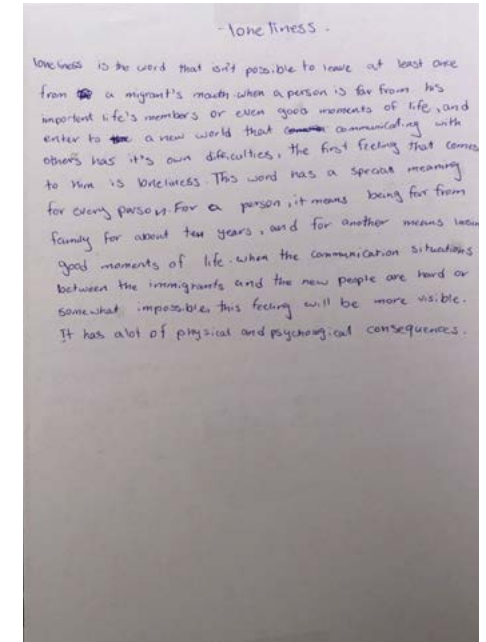 -loneliness.
loneliness is the word that isn't possible to leave at least once
from a migrant's mouth. when a person is far from his
importent life's members or even good moments of life, and
enter to a new world that communicating with
others has it's own difficulties, the first feeling that comes
to him is loneliness. This word has a special meaning
for every person. For a person, it means being far from
family for about ten years, and for another means
good moments of life. when the communication situations
between the immigrants and the new people are hard or
somewhat impossible, this feeling will be more visible.
It has alot of physical and psychological consequences.